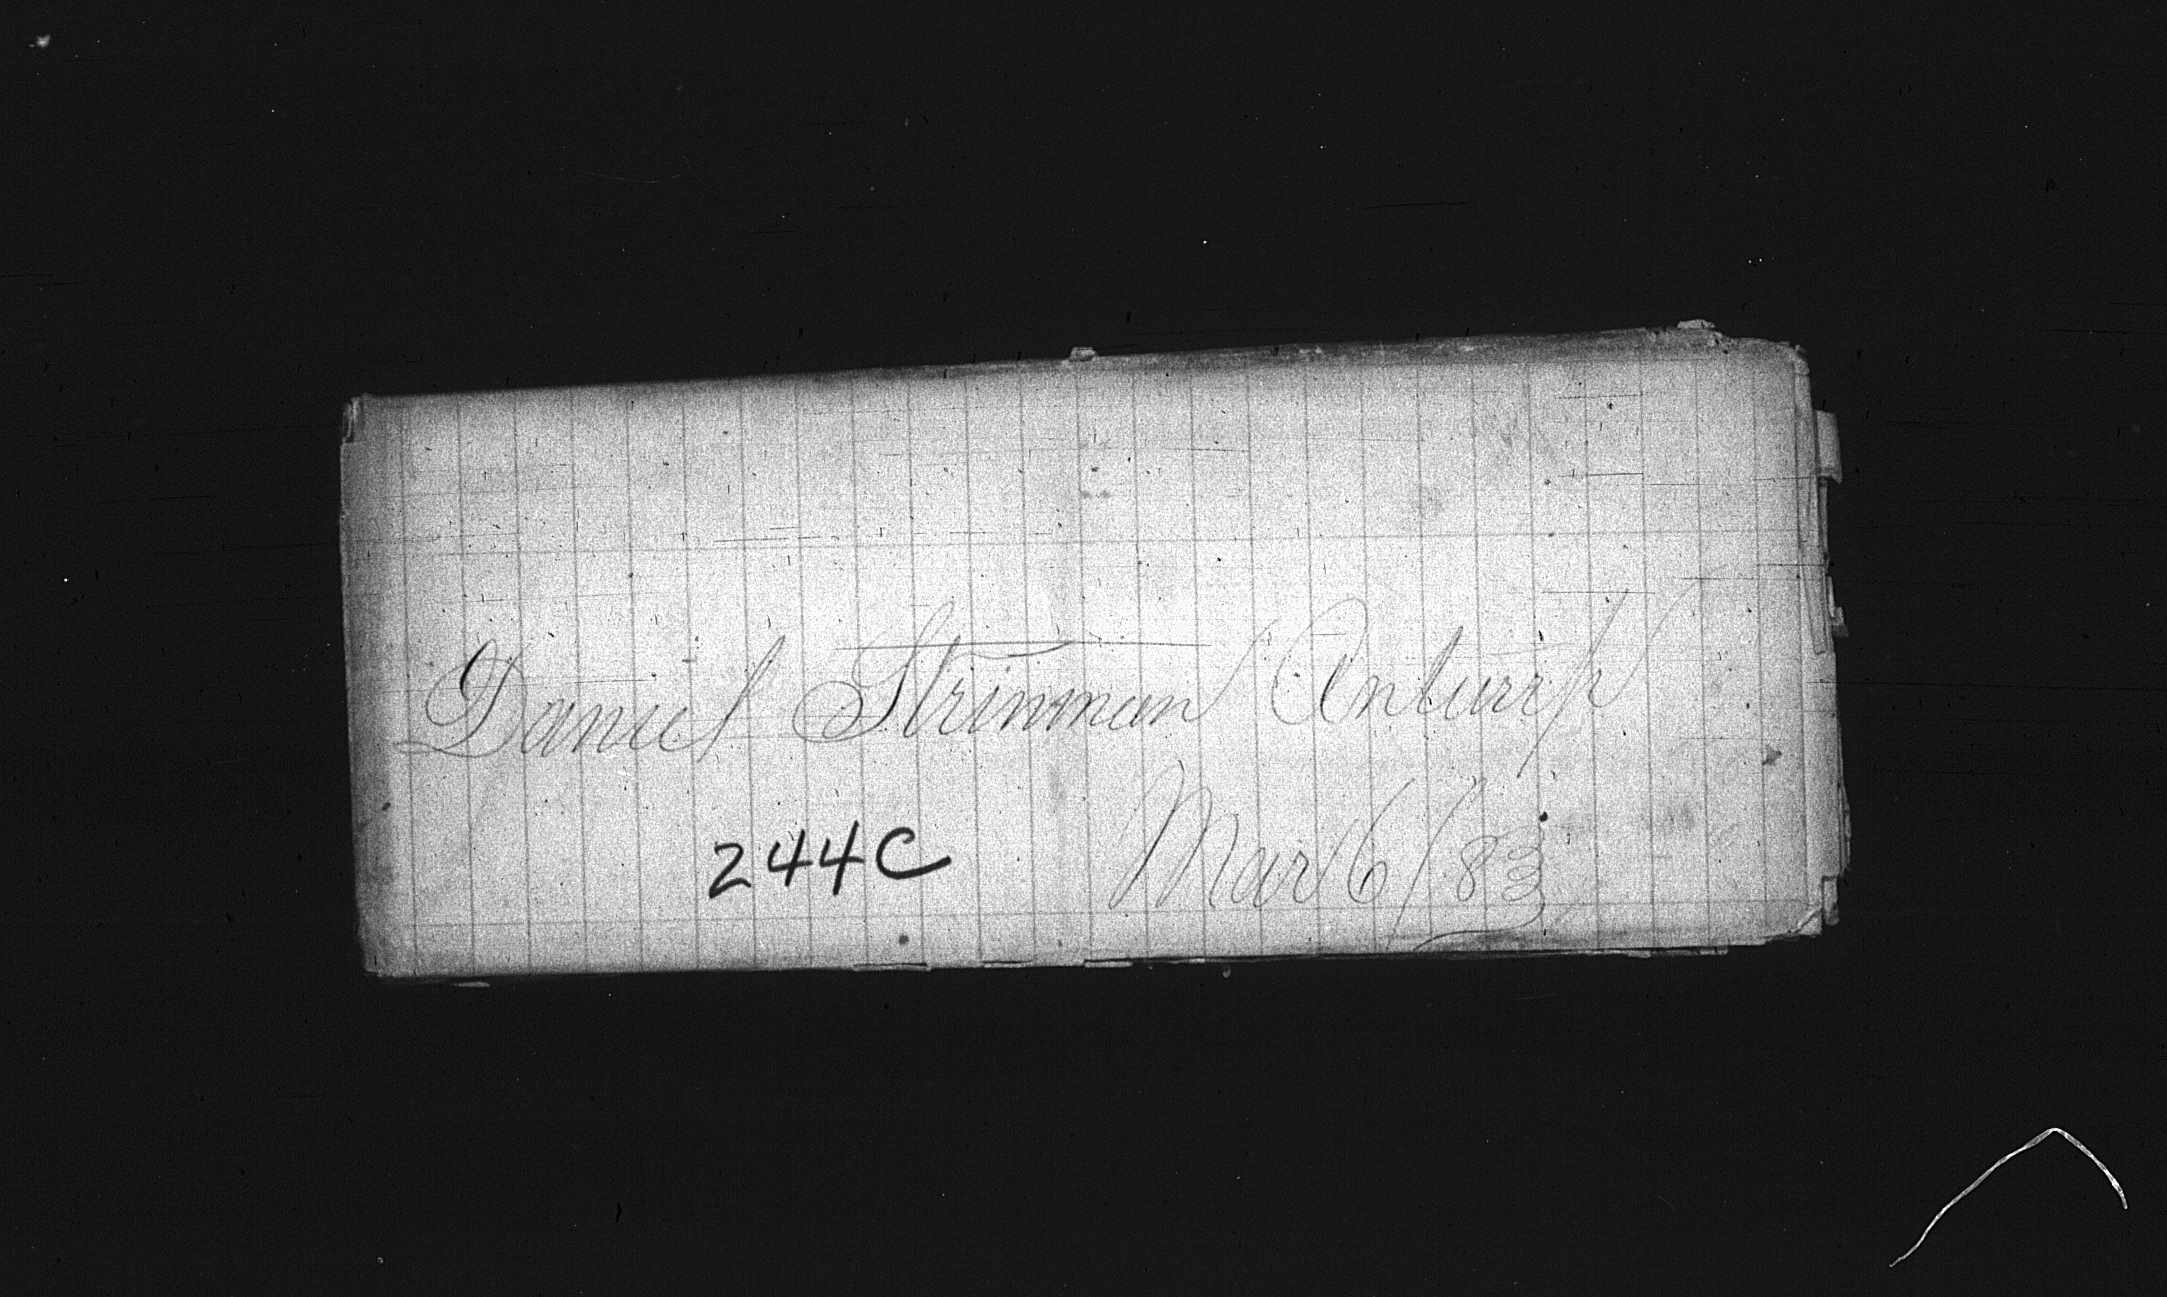 Daniel Steinman Antwerp
244C Mar 6/83